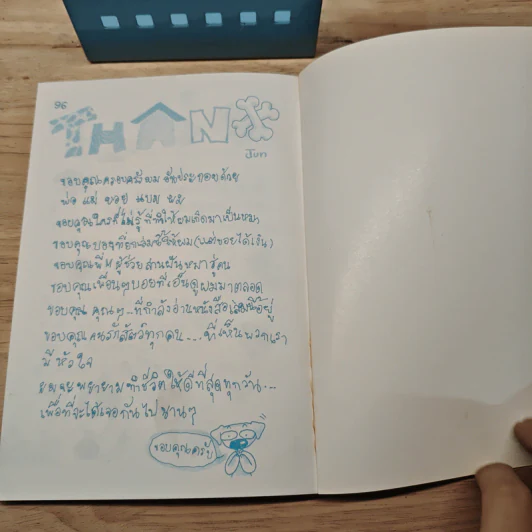 96
THANX
Jun
ขอบคุณครอบครัวผม อันประกอบด้วย
พ่อ แม่
ขอบคุณใครก็ไม่รู้ ที่ทำให้ผมเกิดมาเป็นหมา
ขอบคุณบอย
ขอบคุณพี่ M ผู้ช่วยสานฝันหมาสู่คน
ขอบคุณเพื่อนๆบอยที่เอ็นดูผมมาตลอด
ขอบคุณ คุณๆ...ที่กำลังอ่านหนังสือเล่มนี้อยู่
ขอบคุณคนรักสัตว์ทุกคน...ที่เห็นพวกเรา
มีหัวใจ
ผมจะพยายามทำชีวิตให้ดีที่สุดทุกวัน...
เพื่อที่จะได้เจอกันไปนานๆ
ขอบคุณครับ